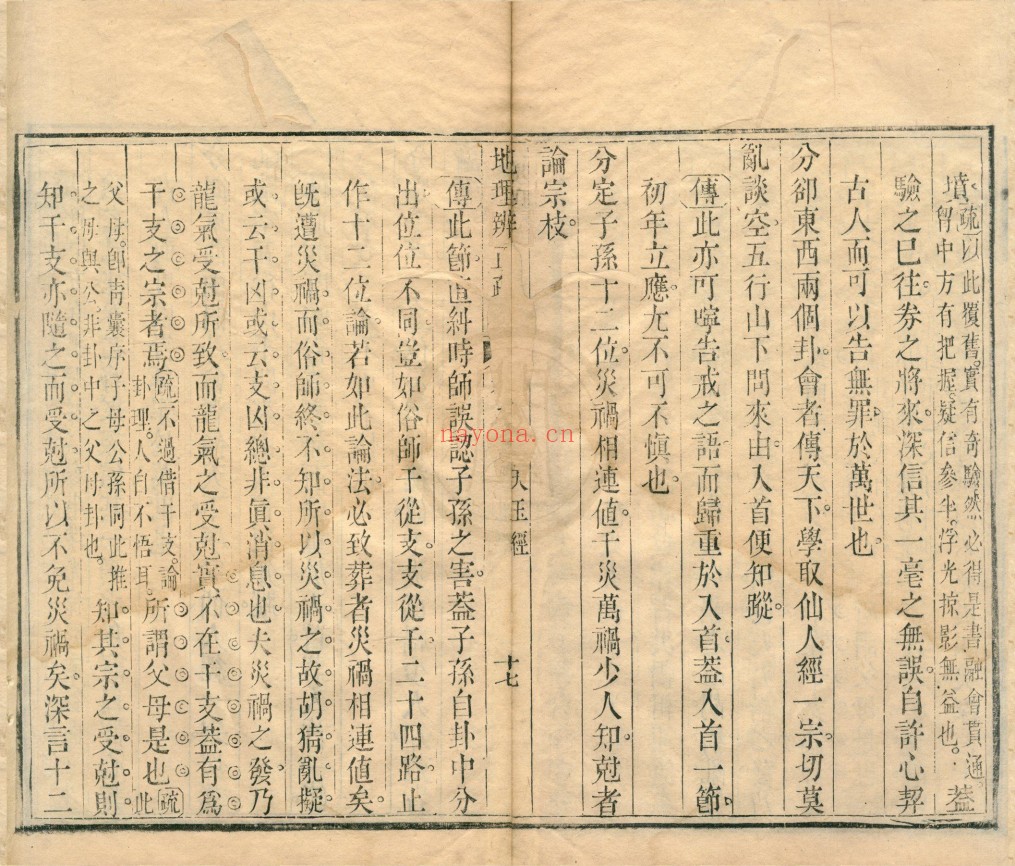 墳疏以此覆舊實有奇驗然必得是書融會貫通
胷中方有把握疑信參半浮光掠影無益也葢
驗之已往券之將來深信其一毫之無誤自許心契
古人而可以告無罪於萬世也
分卻東西兩個卦會者傳天下學取仙人經一宗切莫
亂談空五行山下問來由入首便知蹤
傳此亦叮嚀告戒之語而歸重於入首葢入首一節
初年立應尤不可不慎也
分定子孫十二位災禍相連値千災萬禍少人知尅者
論宗枝
地理辨正疏 天玉經 十七
傳此節直糾時師誤認子孫之害葢子孫自卦中分
出位位不同豈如俗師干從支支從干二十四路止
作十二位論若如此論法必致葬者災禍相連値矣
旣遭災禍而俗師終不知所以災禍之故胡猜亂擬
或云干凶或云支凶總非眞消息也夫災禍之發乃
龍氣受尅所致而龍氣之受尅實不在干支葢有爲
干支之宗者焉疏不過借干支論
卦理人自不悟耳所謂父母是也疏此
父母卽靑囊序子母公孫同此推
之母與公非卦中之父母卦也知其宗之受尅則
知干支亦隨之而受尅所以不免災禍矣深言十二
nayona.cn